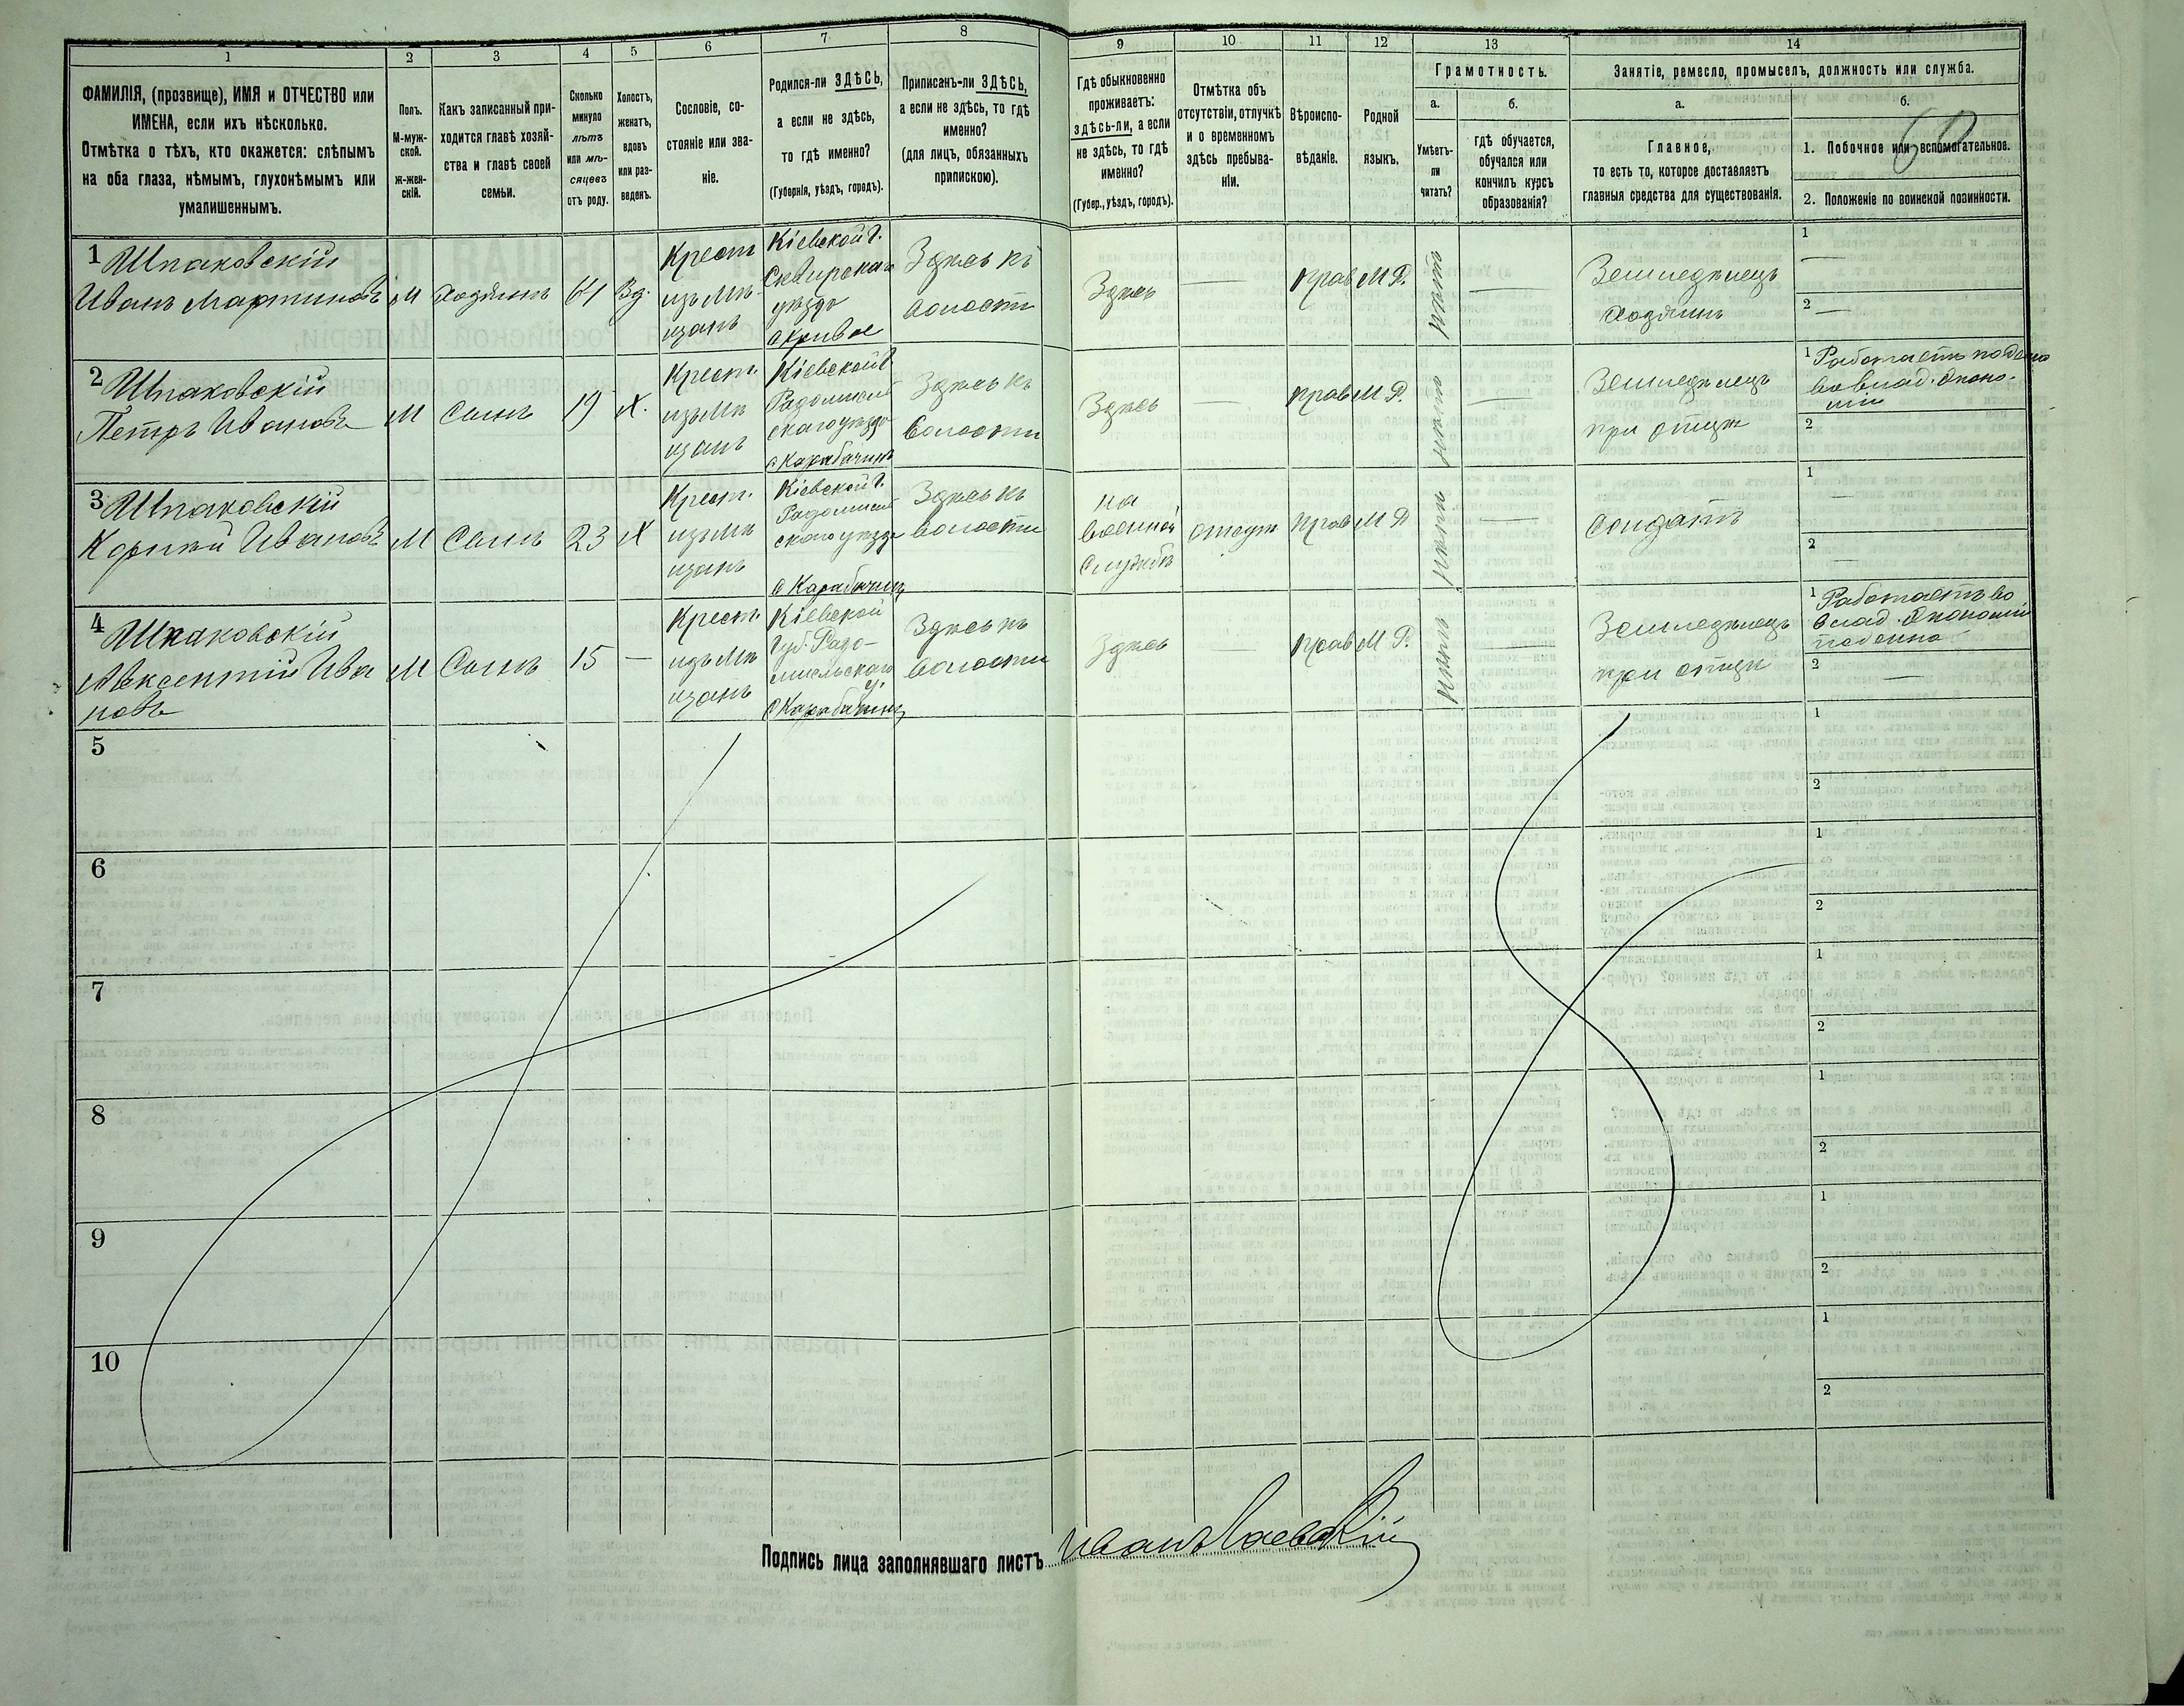 1 2 3 4 5 6 7 8 9 10 11 12 13 14
ФАМИЛІЯ, (прозвище), ИМЯ и ОТЧЕСТВО или
ИМЕНА, если ихъ нѣсколько.
Отмѣтка о тѣхъ, кто окажется: слѣпымъ
на оба глаза, нѣмымъ, глухонѣмымъ или
умалишеннымъ.
Полъ.
М-муж-
ской.
ж-жен-
скій.
Какъ записанный при-
ходится главѣ хозяй-
ства и главѣ своей
семьи.
Сколько
минуло
лѣтъ
или мѣ-
сяцевъ
отъ роду.
Холостъ,
женатъ,
вдовъ
или раз-
веденъ.
Сословіе, со-
стояніе или зва-
ніе.
Родился-ли ЗДѢСЬ,
а если не здѣсь,
то гдѣ именно?
(Губернія, уѣздъ, городъ).
Приписанъ-ли ЗДѢСЬ,
а если не здѣсь, то гдѣ
именно?
(для лицъ, обязанныхъ
припискою).
Гдѣ обыкновенно
проживаетъ:
здѣсь-ли, а если
не здѣсь, то гдѣ
именно?
(Губер., уѣздъ, городъ).
Отмѣтка объ
отсутствіи, отлучкѣ
и о временномъ
здѣсь пребыва-
ніи.
Вѣроиспо-
вѣданіе.
Родной
языкъ.
Грамотность.
а.
Умѣетъ-
ли
читать?
б.
гдѣ обучается,
обучался или
кончилъ курсъ
образованія?
Занятіе, ремесло, промыселъ, должность или служба.
а.
Главное,
то есть то, которое доставляетъ
главныя средства для существованія.
б.
1. Побочное или вспомогательное.
2. Положеніе по воинской повинности.
1 Шпаковскій
Иванъ Мартиновъ
М
Хозяинъ
61
Вд.
Крест
изъ мѣ-
щанъ
Кіевской г.
Сквирскаго
уѣзда
с Кривое
Здѣсь къ
волости
Здѣсь
—
Прав
М Р.
нѣтъ
—
Земледѣлецъ
Хозяинъ
1
—
2
—
2 Шпаковскій
Петръ Ивановъ
М
Сынъ
19
Х.
Крест.
изъ мѣ
щанъ
Кіевской г.
Радомысль
скаго уѣзда
с Карабачинъ
Здѣсь къ
волости
Здѣсь
—
Прав
М Р.
—
Земледѣлецъ
при отцѣ
1 Работаетъ поденно
во влад. Эконо-
міи
2
3 Шпаковскій
Корній Ивановъ
М
Сынъ
23
Х
Крест.
изъ мѣ
щанъ
Кіевской г.
Радомысль
скаго уѣзда
с Карабачинъ
Здѣсь къ
волости
на
военной
службѣ
отсут
Прав
М Р
—
Солдатъ
1
—
2
—
4 Шпаковскій
Авксентій Ива
новъ
М
Сынъ
15
—
Крест.
изъ мѣ
щанъ
Кіевской
Губ. Радо-
мысльскаго
у.
с Карабачинъ
Здѣсь къ
волости
Здѣсь
—
Прав
М Р.
—
Земледѣлецъ
при отцѣ
1 Работаетъ во
влад. Экономіи
поденно
2
—
5
1
2
6
1
2
7
1
2
8
1
2
9
1
2
10
1
2
Подпись лица заполнявшаго листъ